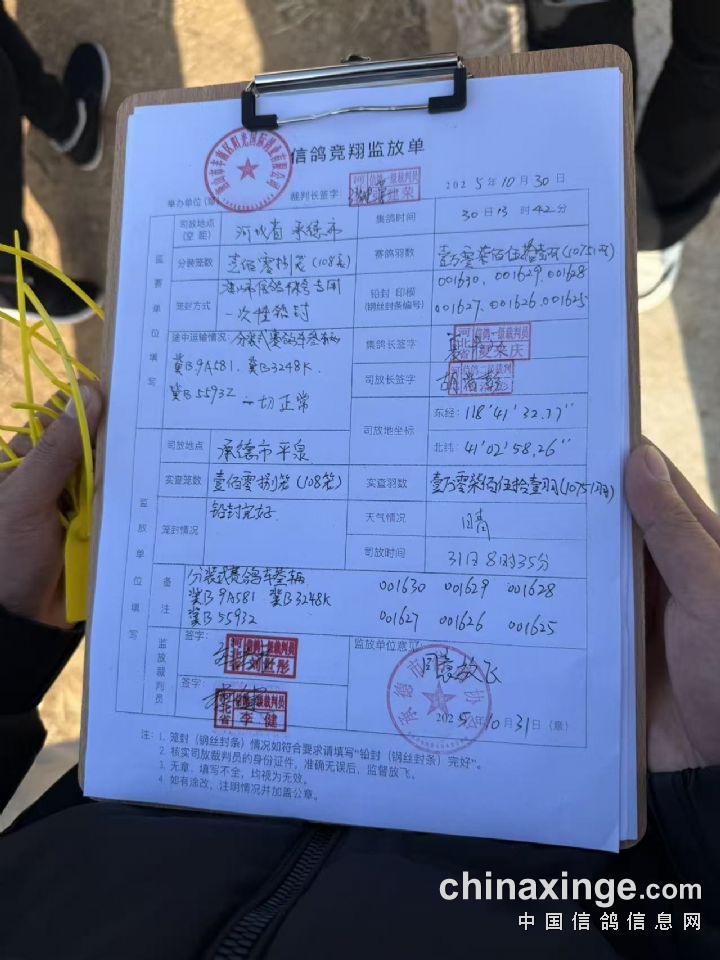 信鸽竞翔监放单
举办单位(章)
裁判长签字:
2025年10月30日
监赛单位填写
司放地点(空距) 河北省 承德市
集鸽时间 30日13时42分
分装笼数 壹佰零捌笼(108笼)
赛鸽羽数 壹万零柒佰伍拾壹羽(10751羽)
笼封方式
一次性铅封
铅封 印模(钢丝封条编号)
001630、001629、001628
001627、001626、001625
途中运输情况: 分装式赛鸽车叁辆
冀B9A581、冀B3248K、
冀B55932 一切正常
集鸽长签字
司放长签字
司放地坐标
东经: 118°41′32.77″
北纬: 41°02′58.26″
监放单位填写
司放地点 承德市平泉
实查笼数 壹佰零捌笼(108笼)
实查羽数 壹万零柒佰伍拾壹羽(10751羽)
笼封情况 铅封完好
天气情况 晴
司放时间 31日8时35分
备注
分装式赛鸽车叁辆
冀B9A581 冀B3248K
冀B55932
001630 001629 001628
001627 001626 001625
监放裁判员
签字:
签字:
李健
监放单位意见:
同意放飞
2025年10月31日(章)
注: 1. 笼封(钢丝封条)情况如符合要求请填写“铅封(钢丝封条)完好”。
2. 核实司放裁判员的身份证件,准确无误后,监督放飞。
3. 无章、填写不全,均视为无效。
4. 如有涂改,注明情况并加盖公章。
chinaxinge.com
中国信鸽信息网